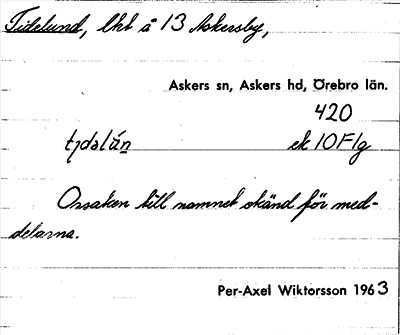 Tidelund, lht å 13 Askersby,
Askers sn, Askers hd, Örebro län.
420
ek 10F1g
Orsaken till namnet okänd för med-
delarna.
Per-Axel Wiktorsson 1963